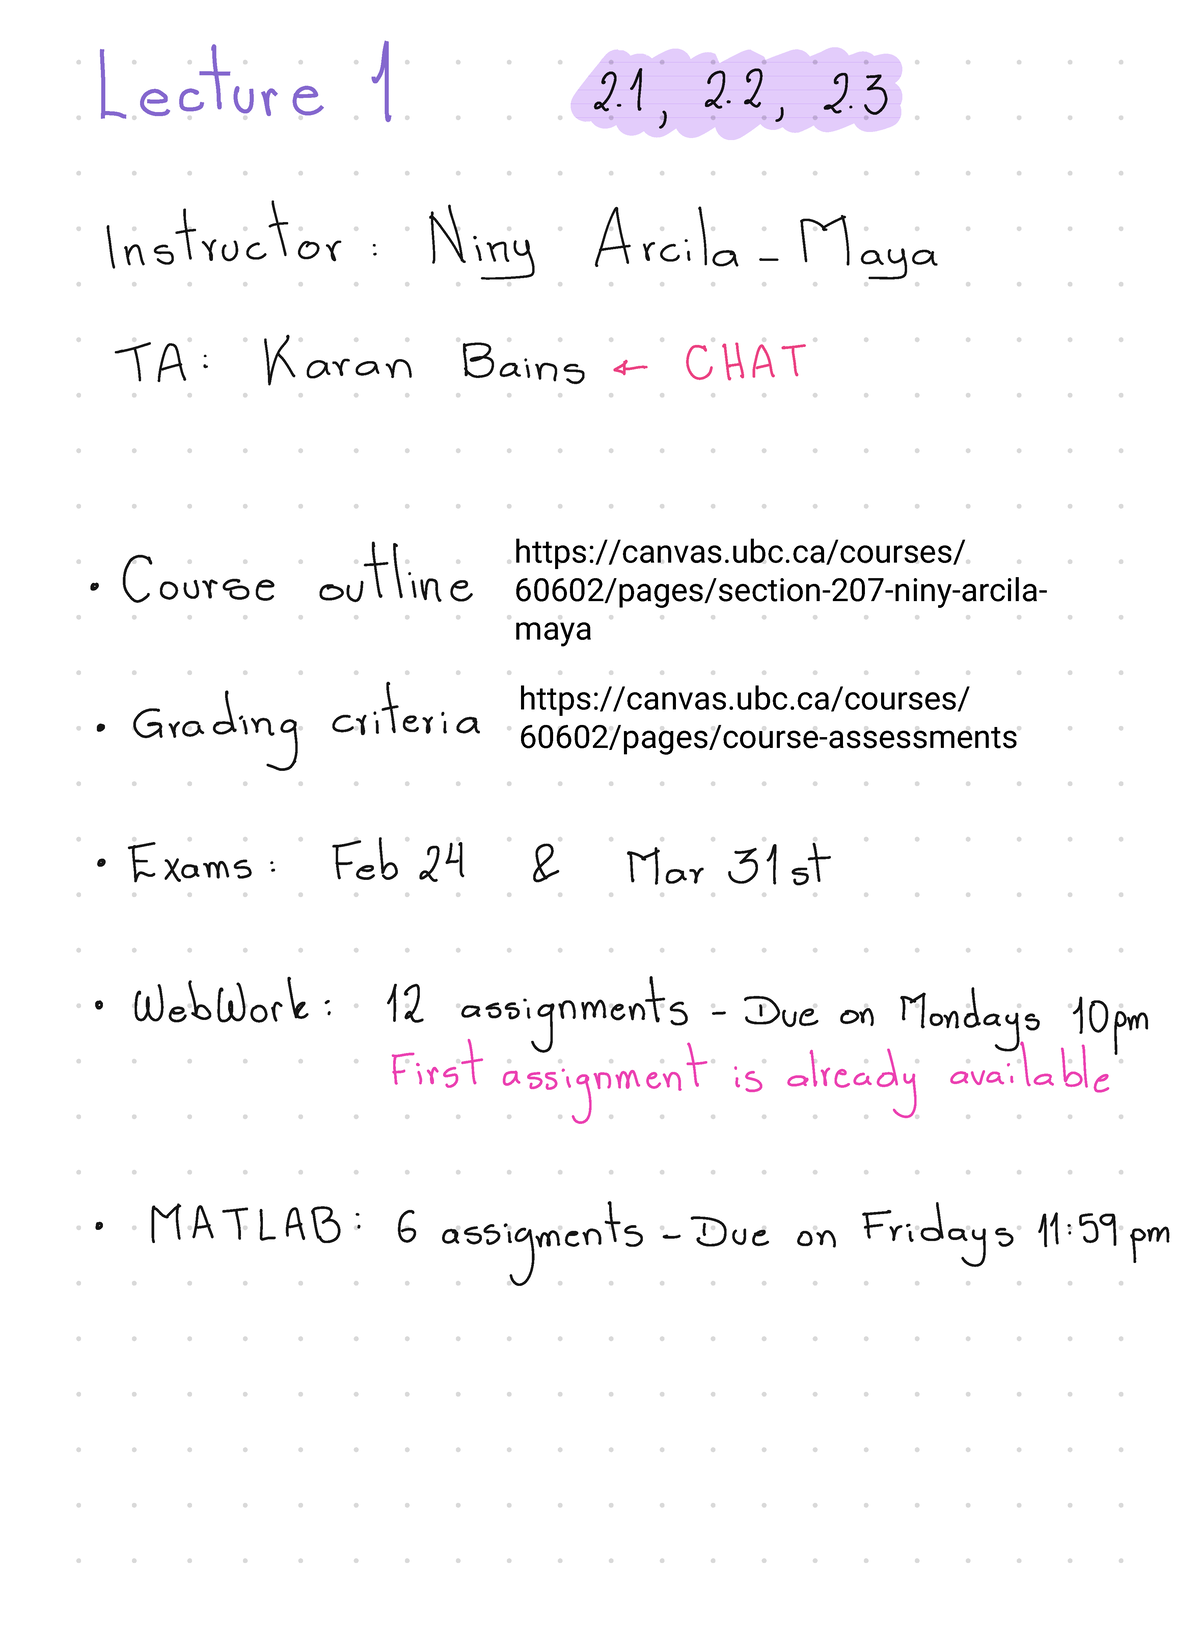 Lecture 1 2.1, 2.2, 2.3
Instructor: Niny Arcila-Maya
TA: Karan Bains ← CHAT
• Course outline https://canvas.ubc.ca/courses/
60602/pages/section-207-niny-arcila-
maya
• Grading criteria https://canvas.ubc.ca/courses/
60602/pages/course-assessments
• Exams: Feb 24 & Mar 31st
• WebWork: 12 assignments - Due on Mondays 10pm
First assignment is already available
• MATLAB: 6 assigments - Due on Fridays 11:59pm